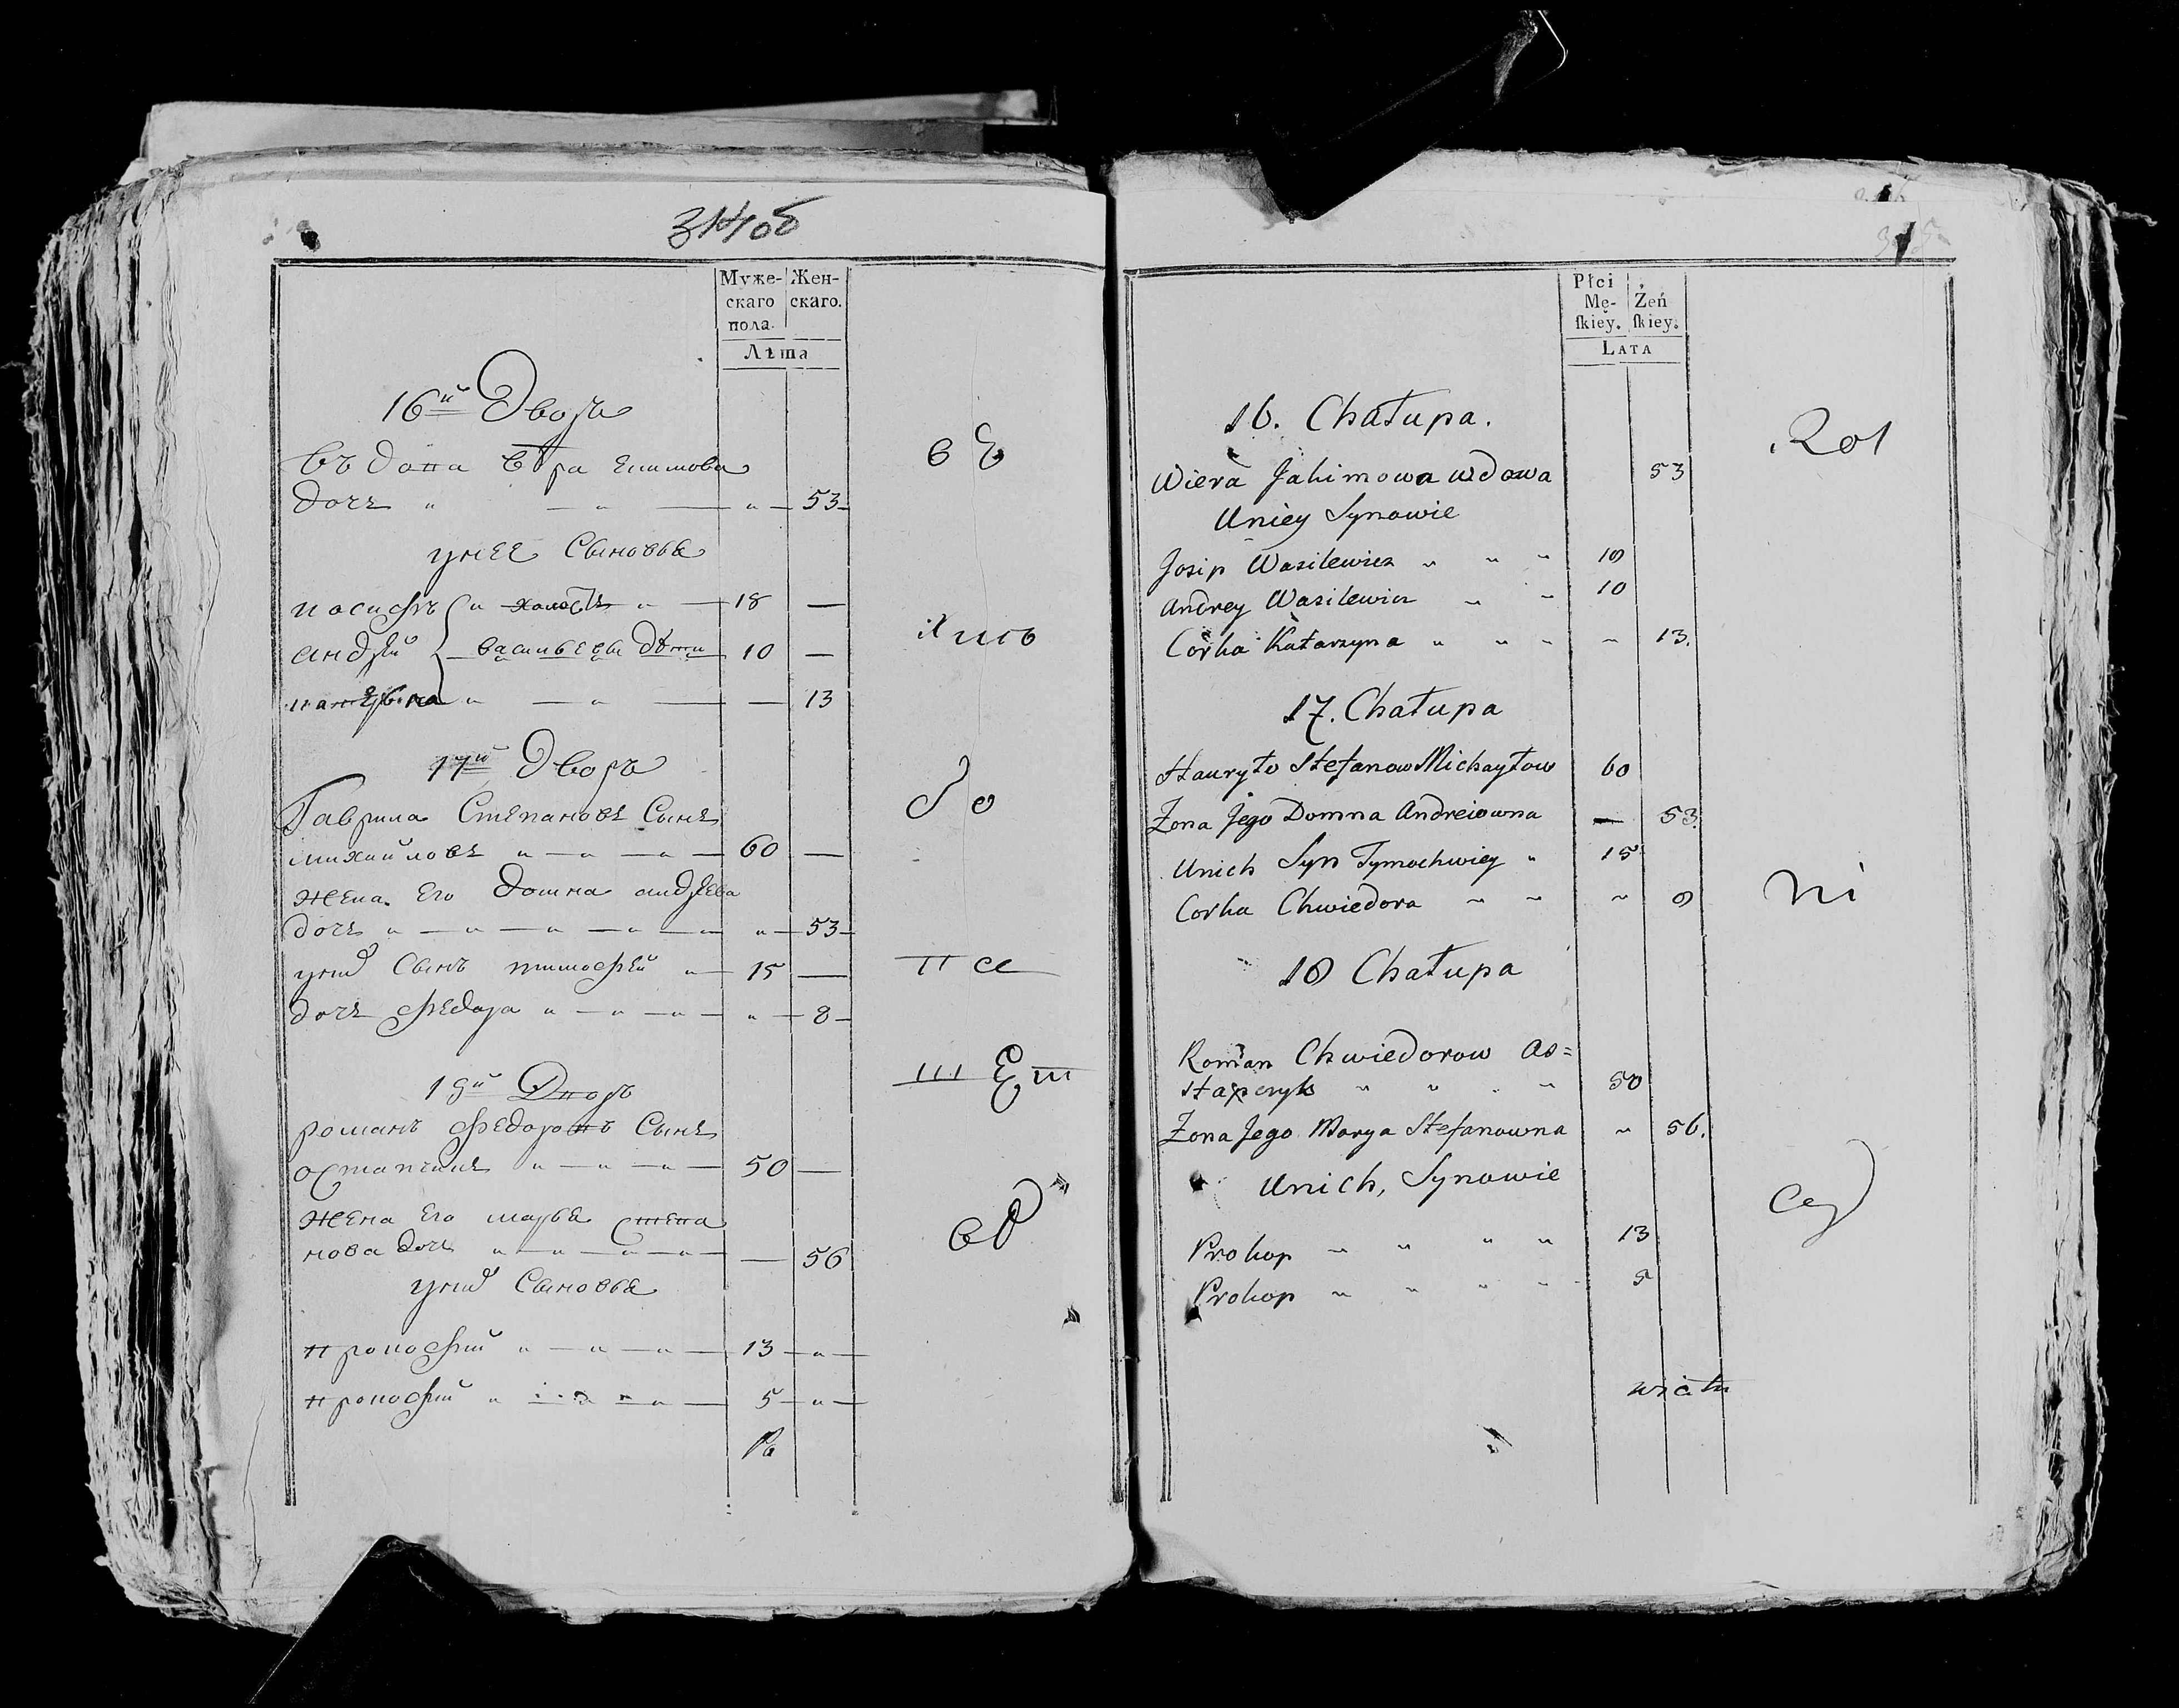 314об
Муже- Жен-
скаго скаго.
пола.
Лѣта
16й Дворъ
вЕ
Въдова Вѣра Екимова
дочь 53
у нее Сыновья
иосифъ холостъ 18
хись
андрей васильевы дѣти 10
13
17й Дворъ
до
Гаврила Степановъ Сынъ
михайловъ 60
жена Его Домна андреева
дочь 53
па
у них Сынъ тимофей 15
дочь федора 8
шЕш
18й Дворъ
романъ федоровъ Сынъ
остапчикъ 50
жена Его марья степа
нова дочь 56
у них Сыновья
прокофий 13
прокофий 5
Płci
Mę- Żeń
ſkiey. ſkiey.
LATA
16. Chałupa.
Wiera Jakimowa wdowa 53
Uniey Synowie
Josip Wasilewicz 18
Andrey Wasilewicz 10
Corka Katarzyna 13.
17. Chałupa
Hauryło Stefanow Michayłow 60
Zona Jego Domna Andreiowna 53.
Unich Syn Tymochwiey 15
Corka Chwiedora 8
ni
18 Chałupa
Roman Chwiedorow As=
stapczyk 50
Zona Jego Marya Stefanowna 56.
Unich, Synowie
Prokop 13
Prokop 5